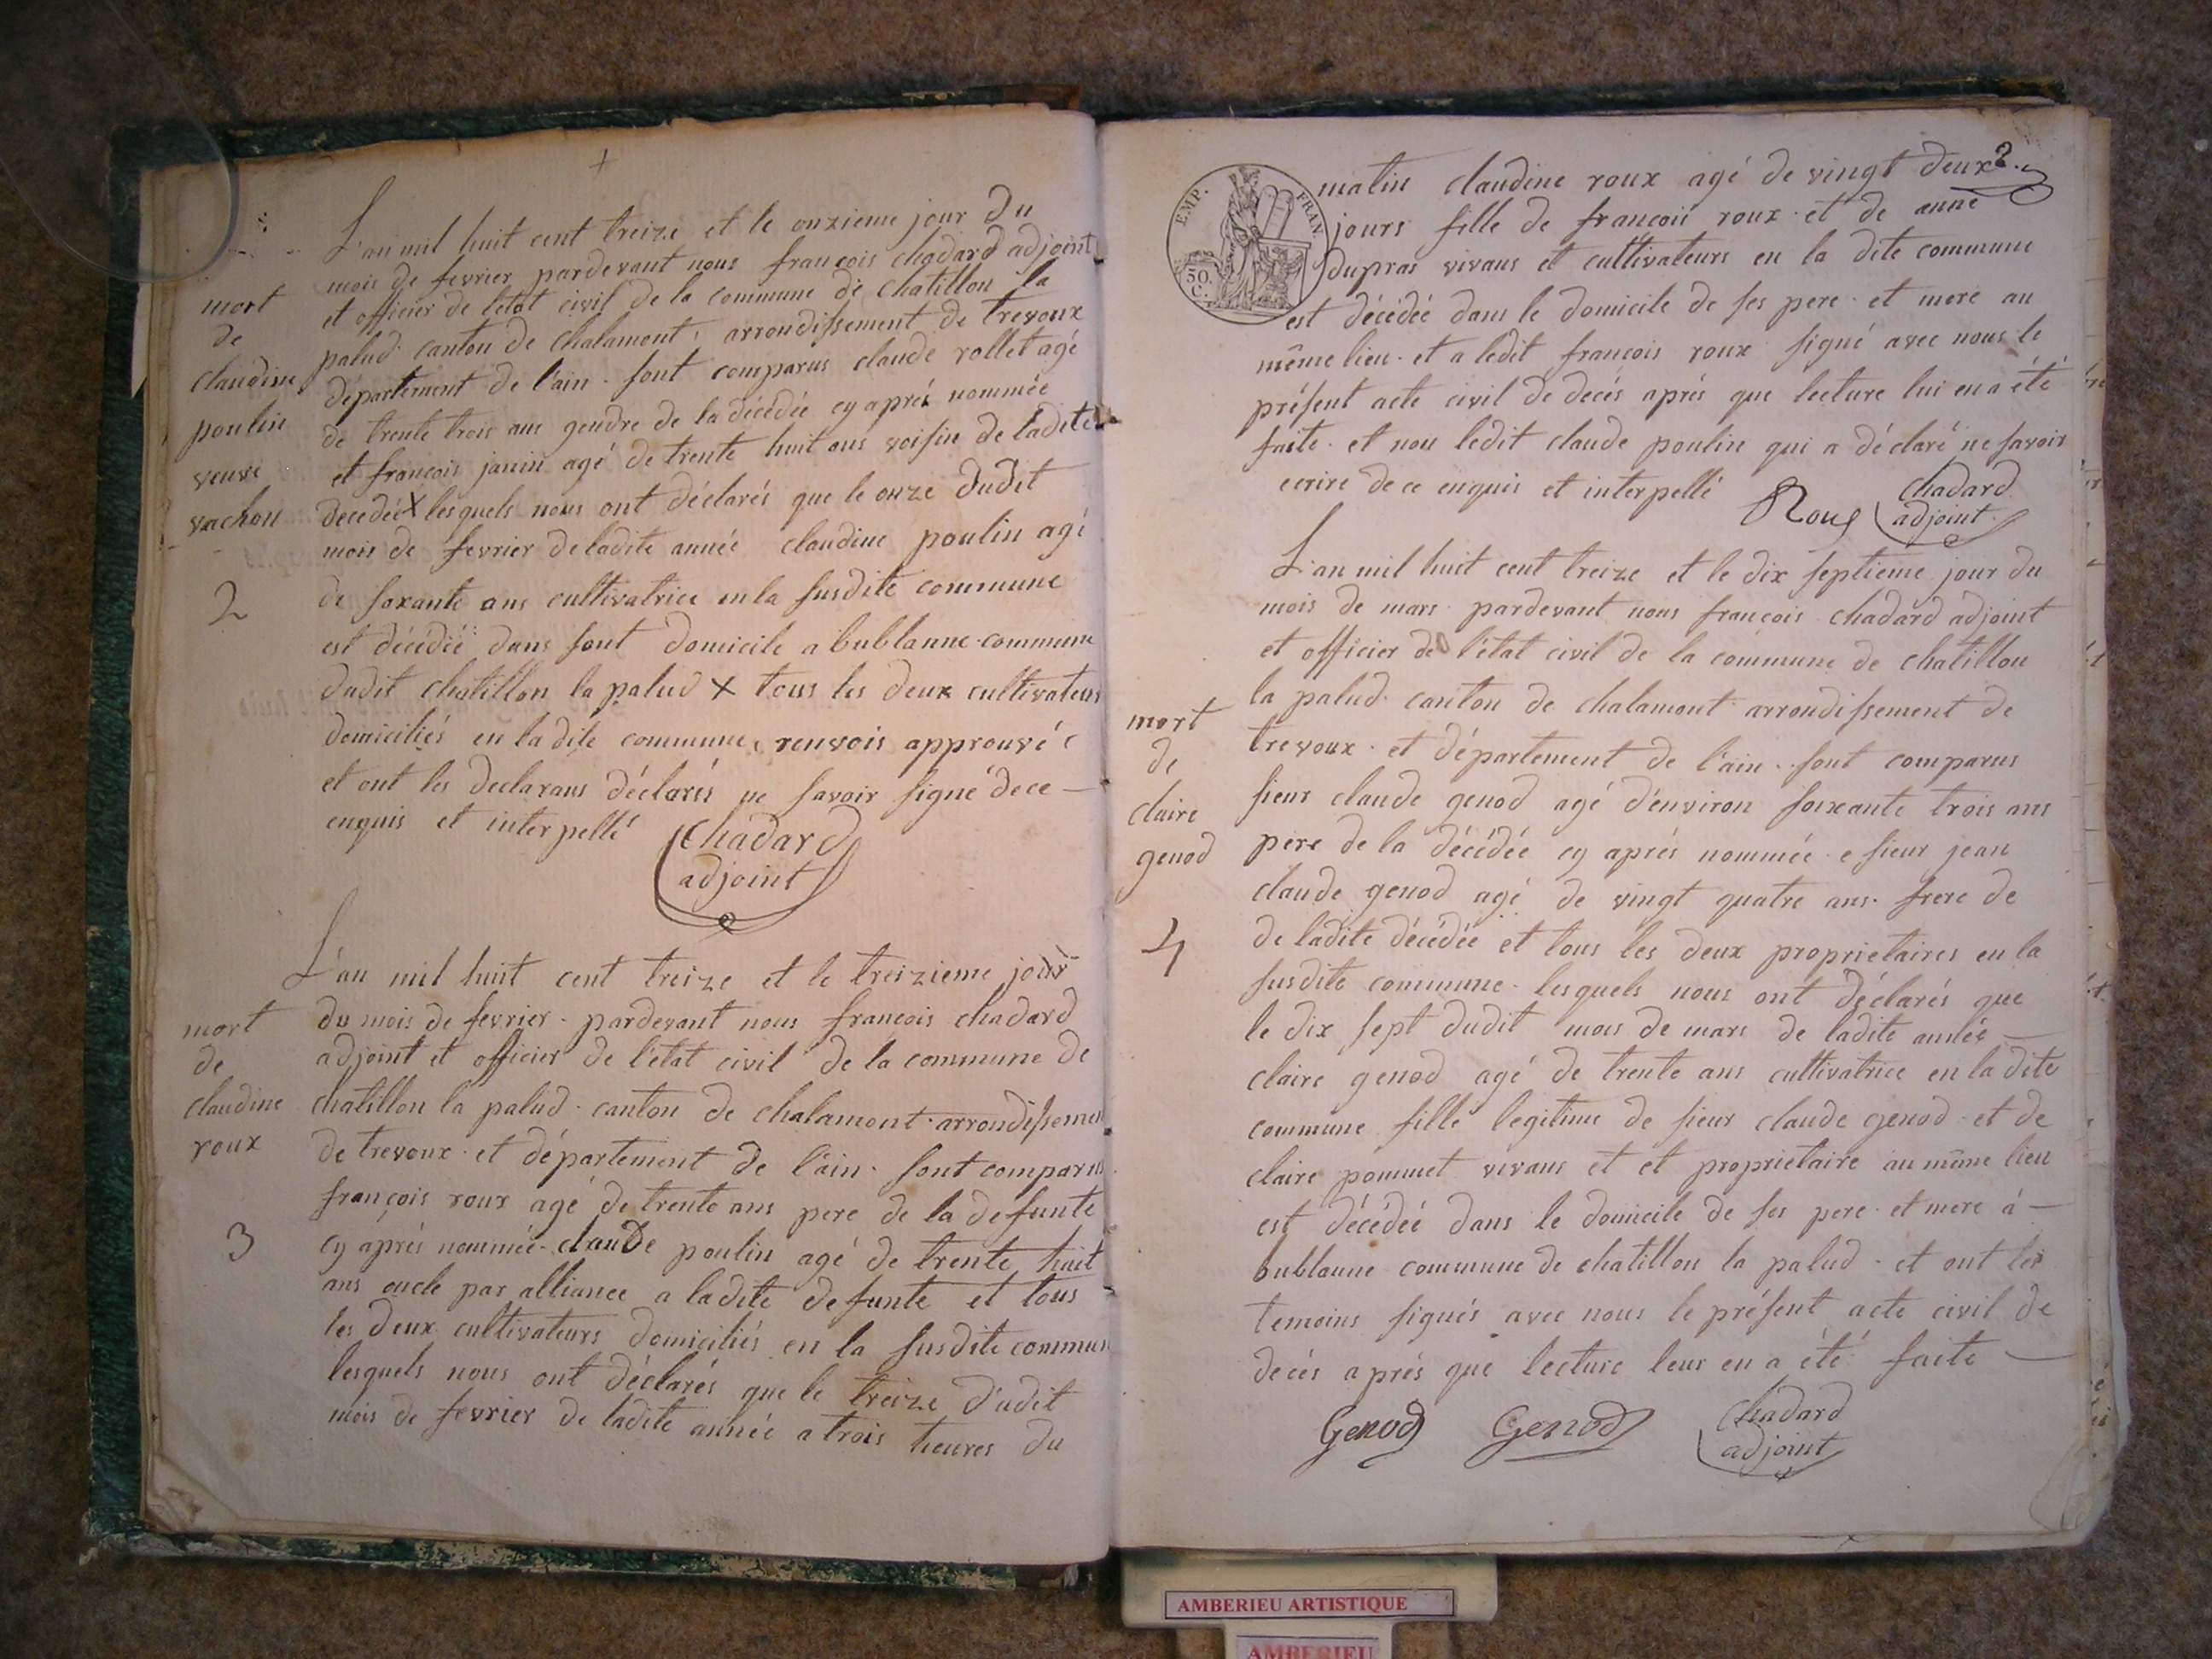 L'an mil huit cent treize et le onzieme jour du
mois de fevrier pardevant nous francois chadard adjoint
et officier de letat civil de la commune de chatillon la
palud canton de chalamont arrondissement de trevoux
département de l'ain. sont comparus claude rollet agé
de trente trois ans gendre de la décédée cy aprés nommée
et francois janin agé de trente huit ans voisin de ladite
decedée X lesquels nous ont déclarés que le onze dudit
mois de fevrier de ladite année claudine poulin agé
de soxante ans cultivatrice en la susdite commune
est décédée dans sont domicile a bublanne commune
dudit chatillon la palud X tous les deux cultivateurs
domiciliés en la dite commune, renvois approuvé
et ont les declarans déclarés ne savoir signé de ce —
enquis et interpellé
chadard
adjoint
mort
de
claudine
poulin
veuve
vachon
2
L'an mil huit cent treize et le treizieme jour
du mois de fevrier. pardevant nous francois chadard
adjoint et officier de l'etat civil de la commune de
chatillon la palud. canton de chalamont. arrondissemen
de trevoux. et département de l'ain. sont comparus
françois roux agé de trente ans pere de la defunte
cy aprés nommée. claude poulin agé de trente huit
ans oncle par alliance a ladite defunte et tous
les deux cultivateurs domiciliés en la susdite commun
lesquels nous ont déclarés que le treize d'udit
mois de fevrier de ladite année a trois heures du
mort
de
claudine
roux
3
2.
EMP. FRAN.
50 C.
matin claudine roux agé de vingt deux
jours fille de francois roux. et de anne
dupras vivans et cultivateurs en la dite commune
est décédée dans le domicile de ses pere. et mere au
même lieu. et a ledit francois roux signé avec nous le
présent acte civil de decés aprés que lecture lui en a été
faite. et non ledit claude poulin qui a déclaré ne savoir
ecrire de ce enquis et interpellé
Roux chadard
adjoint
L'an mil huit cent treize et le dix septieme jour du
mois de mars. pardevant nous francois chadard adjoint
et officier de l'état civil de la commune de chatillon
la palud. canton de chalamont. arrondissement de
trevoux. et département de l'ain. sont comparus
sieur claude genod agé d'environ soixante trois ans
pere de la décédée cy aprés nommée. e sieur jean
claude genod agé de vingt quatre ans. frere de
de ladite décédée et tous les deux proprietaires en la
susdite commune. lesquels nous ont déclarés que
le dix sept dudit mois de mars de ladite année —
claire genod agé de trente ans cultivatrice en la dite
commune fille legitime de sieur claude genod. et de
claire pommet vivans et et proprietaire au même lieu
est décédée dans le domicile de ses pere. et mere á —
bublanne commune de chatillon la palud. et ont les
temoins signés avec nous le présent acte civil de
decés aprés que lecture leur en a été faite —
Genod Genod chadard
adjoint
mort
de
claire
genod
4
AMBERIEU ARTISTIQUE
AMBERIEU